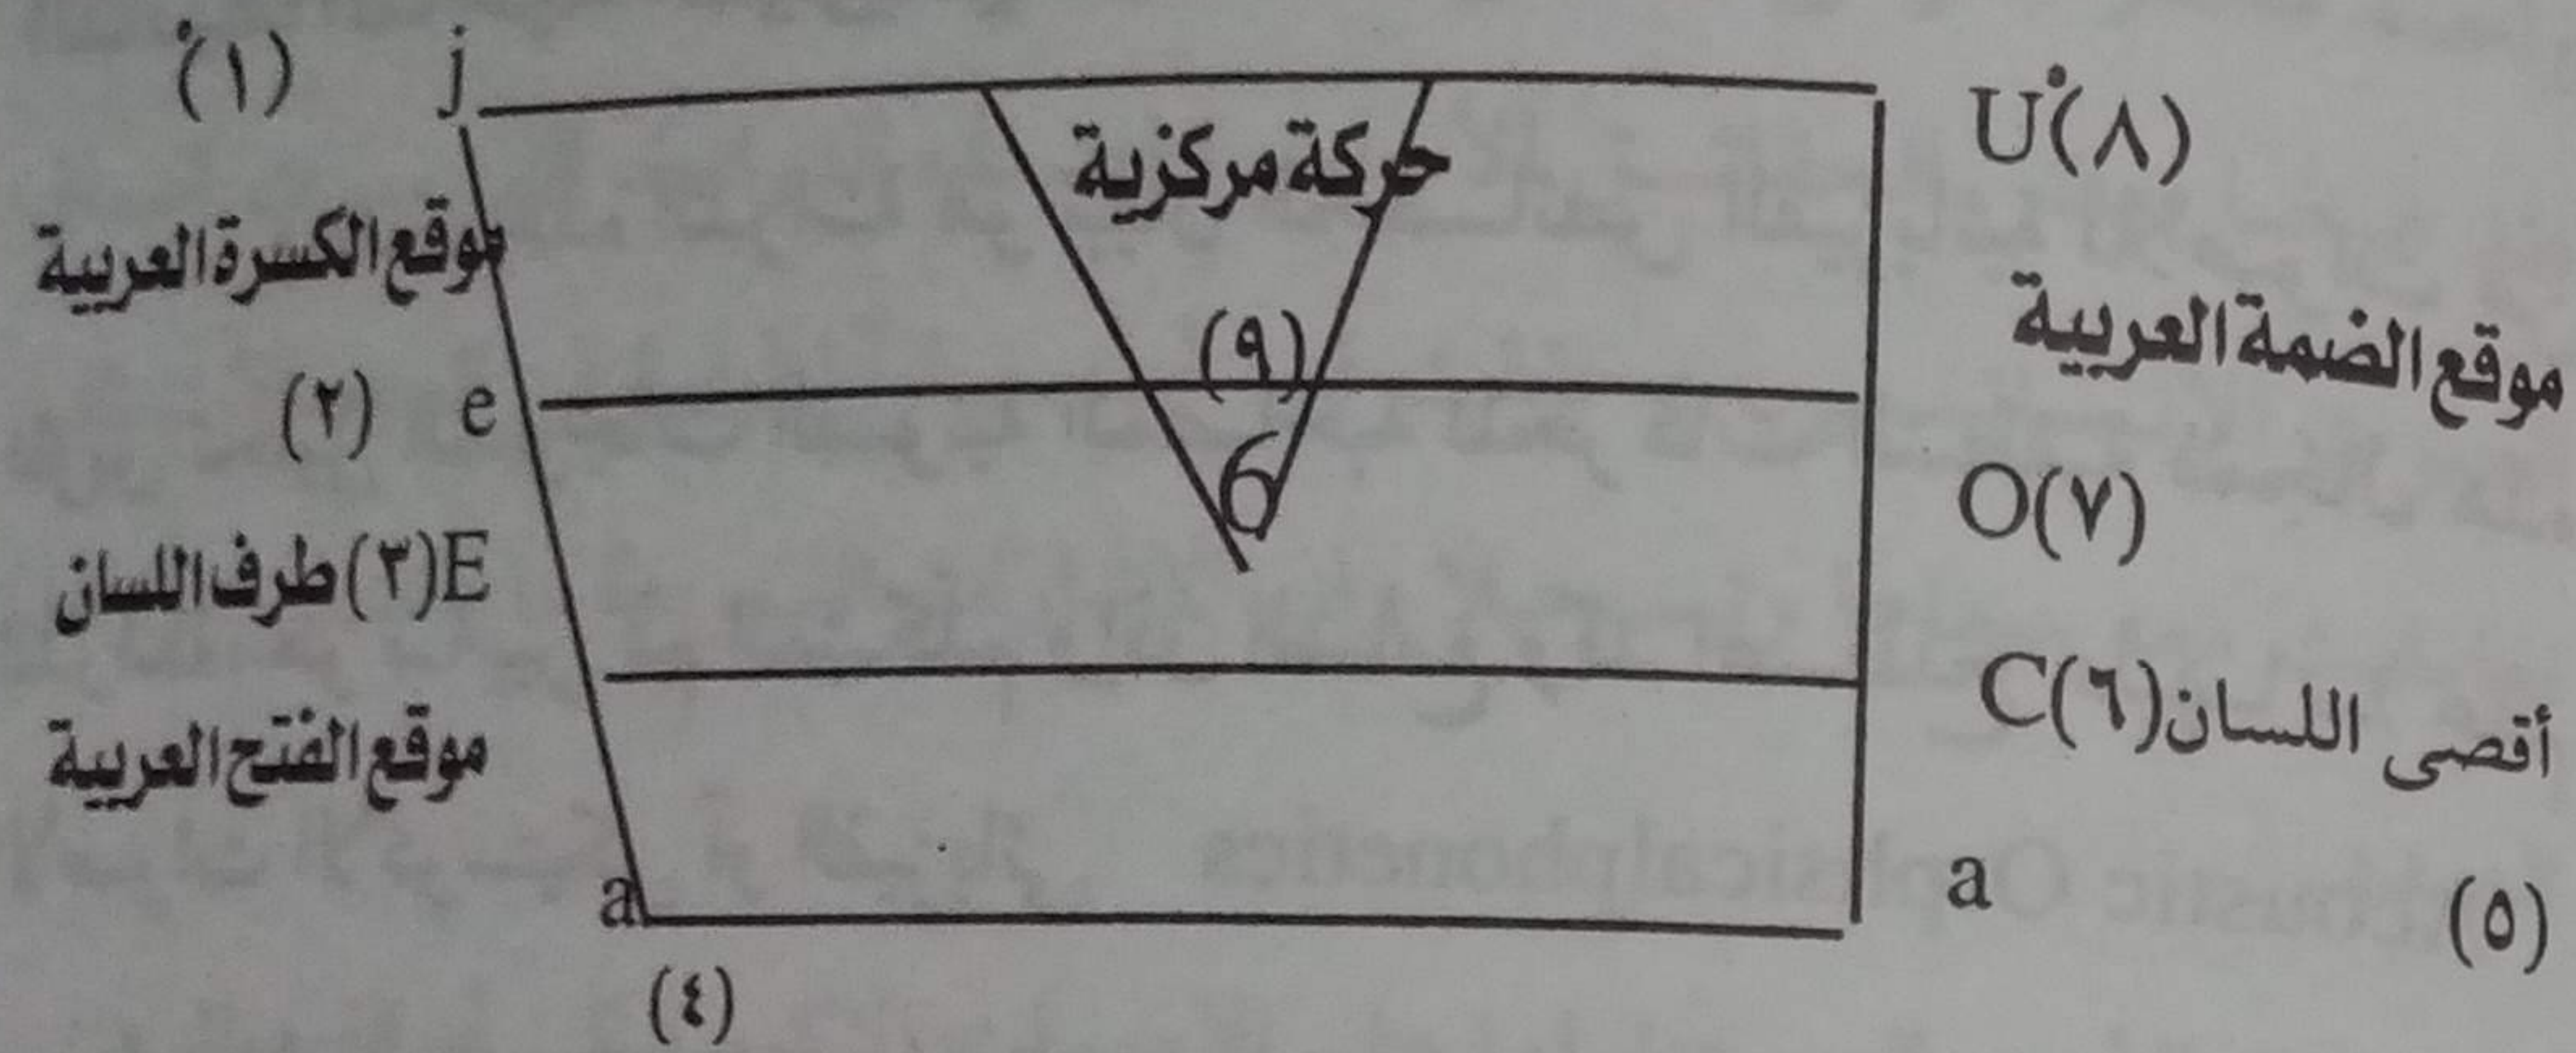 (١) j
U(٨)
حركة مركزية
موقع الكسرة العربية
موقع الضمة العربية
(٩)
(٢) e
6
O(٧)
E(٣) طرف اللسان
C(٦) أقصى اللسان
موقع الفتح العربية
a
a
(٥)
(٤)